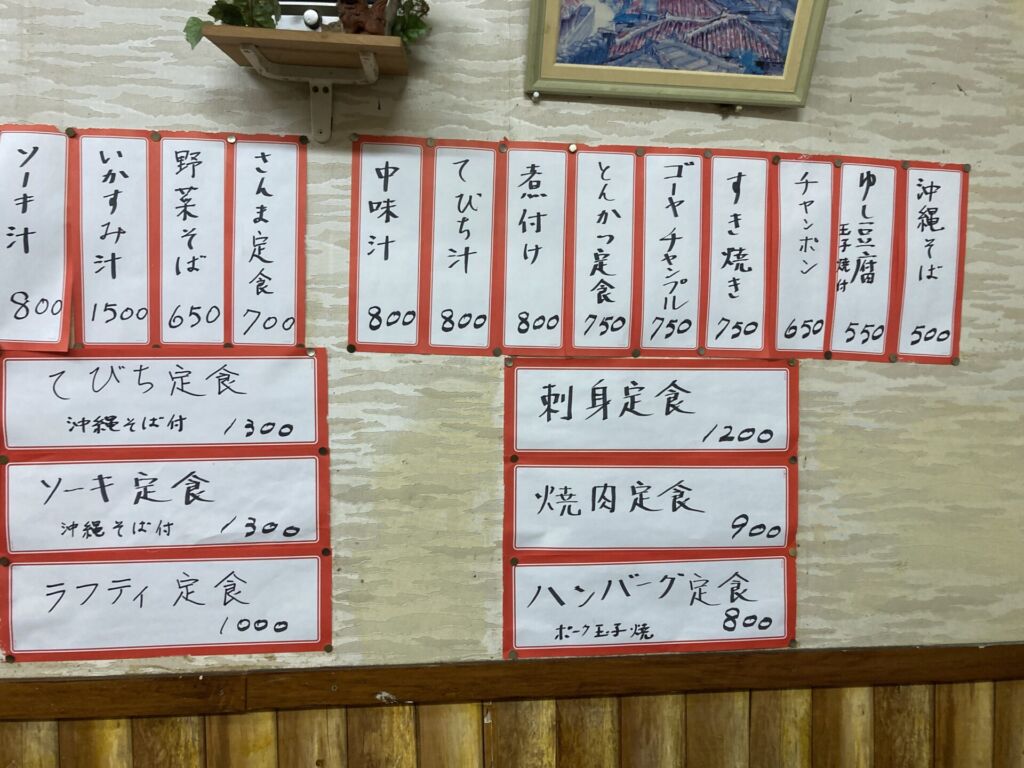 沖縄そば
500
ゆし豆腐
玉子焼付
550
チャンポン
650
すき焼き
750
ゴーヤチャンプル
750
とんかつ定食
750
煮付け
800
てびち汁
800
中味汁
800
さんま定食
700
野菜そば
650
いかすみ汁
1500
ソーキ汁
800
刺身定食
1200
焼肉定食
900
ハンバーグ定食
ポーク玉子焼
800
てびち定食
沖縄そば付
1300
ソーキ定食
沖縄そば付
1300
ラフティ定食
1000